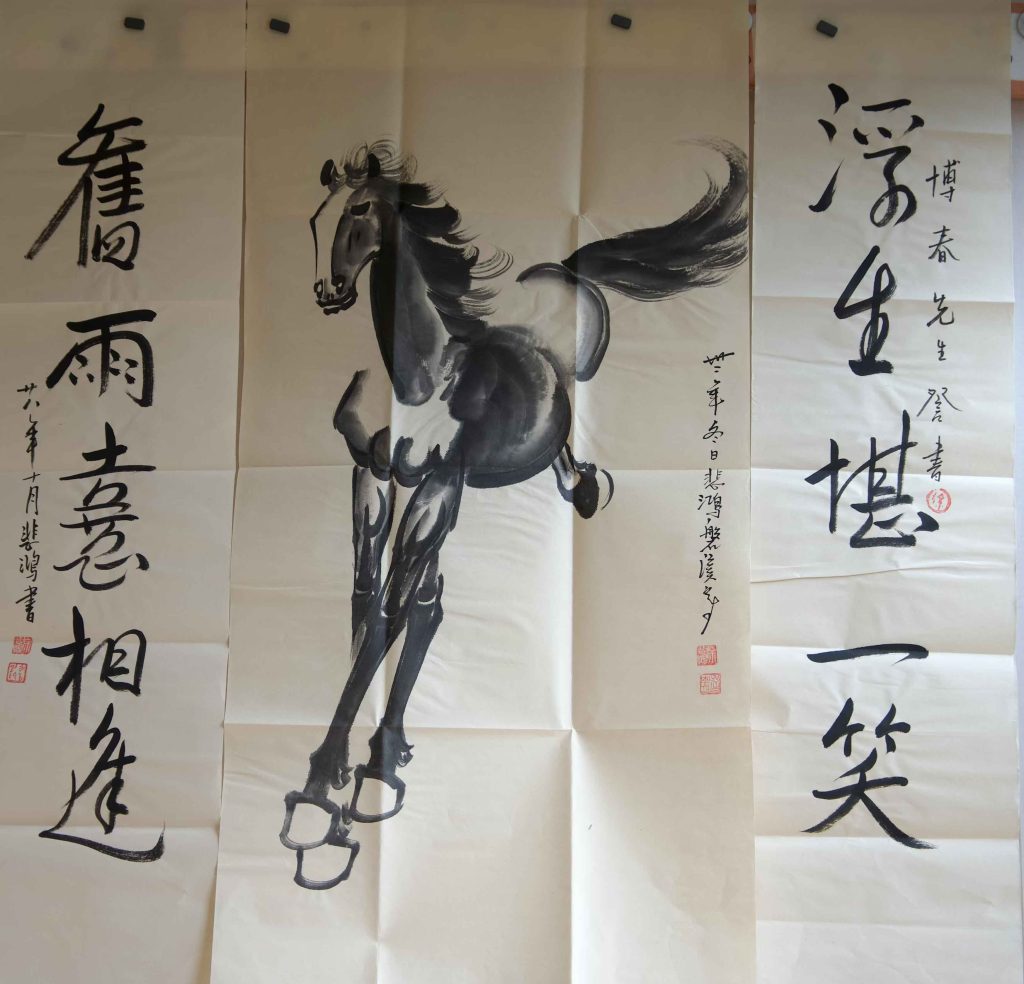 浮生堪一笑
博春先生詧書
卅二年冬日悲鴻磐溪
舊雨憙相逢
廿八年十月悲鴻書